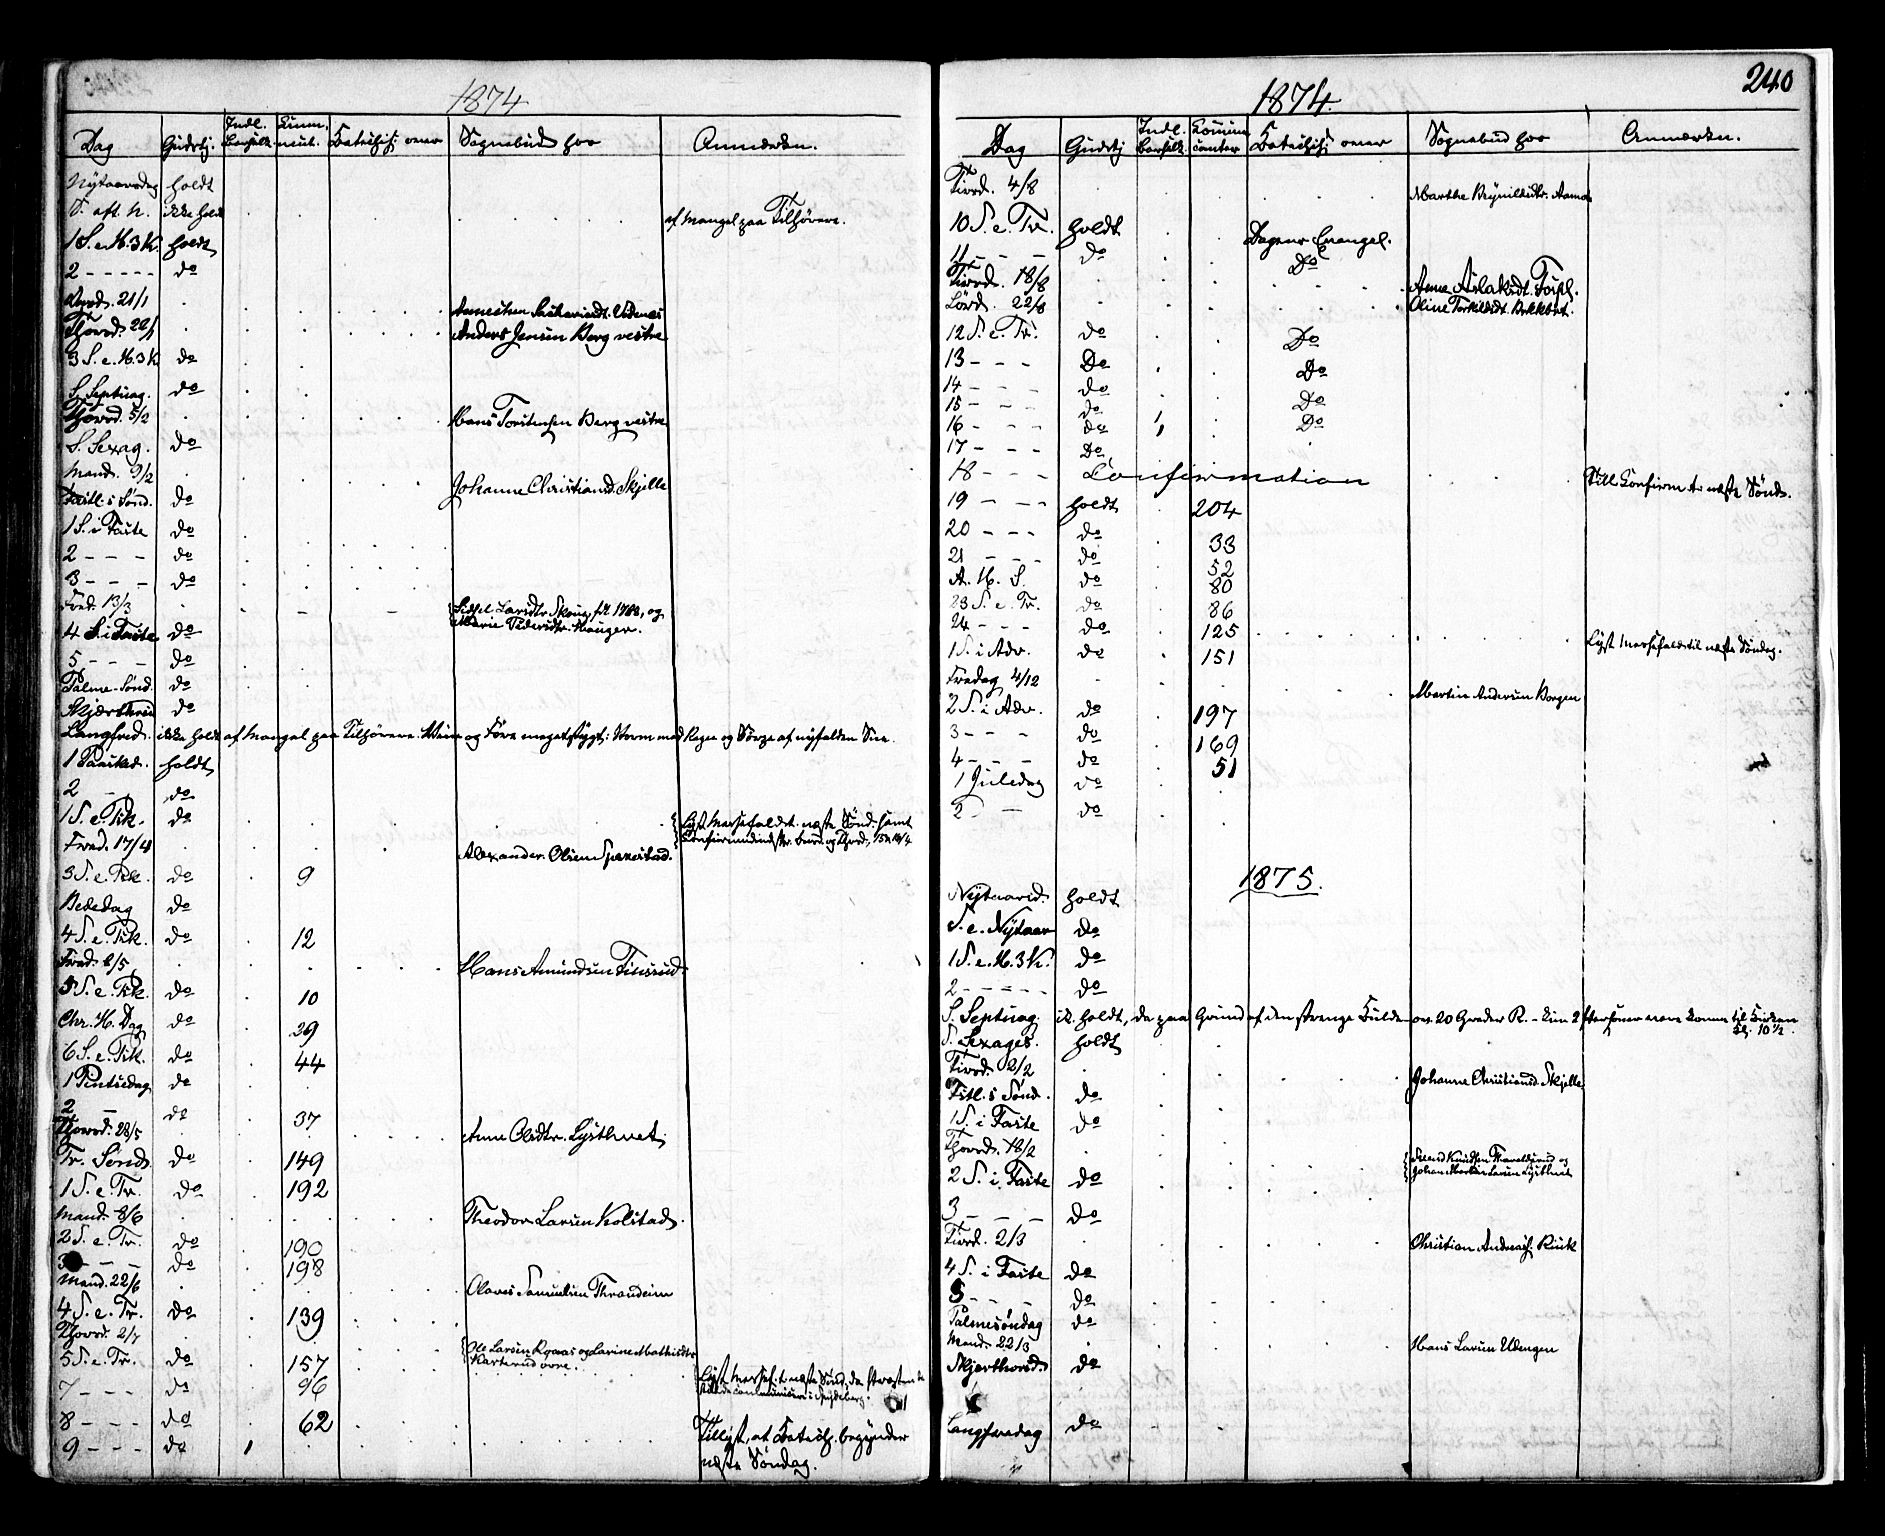 1874
Dag Gudstj. Indl. Barselk. Kommunik. Catechis. over Sognebud hos Anmærkn.
Nytaarsdag holdt
S. eft. N. ikke holdt af Mangel paa Tilhørere.
1 S. e. H. 3 K. holdt
2 - - - - - do
Onsd. 21/1 Udenæs
Thorsd. 22/1 Anders Jensen Berg vestre
3 S. e. H. 3 K do
S. Septuag. do
Thorsd. 5/2 Hans Torstensen Berg vestre
S. Sexag. do
Mand. 9/2 Johanne Christiansd. Skjelle
Fastl. s Sønd. do
1 S. i Faste do
2 - - - do
3 - - - do
Fred. 13/3 Sidsel Larsdtr. Skoug, f. 1788, og
Marie Pedersdtr. Haugen.
4 S. i Faste do
5 - - - do
Palme-Sønd. do
Skjærthorsd do
Langfred. ikke holdt af Mangel paa Tilhørere. Veir og Føre meget stygt: Storm med Regn og Sørpe af nyfalden Snee.
1 Paasked. holdt
2 - do
1 S. e. Pck. do Lyst Messefald t. næste Sønd. samt
Fred. 17/4 Alexander Olsen Spenestad.
3 S. e. Pck. do 9
Bededag do
4 S. e. Pck. do 12
Fred. 8/5 Hans Amundsen Finsrud
5 S. e. Pck. do 10
Chr. H. Dag do 29
6 S. e. Pck. do 44
1 Pintsedag do
2 - do 37
Thorsd. 28/5 Anne Olsdtr. Lysthuet.
Tr. Sønd. do 149
1 S. e. Tr. do 192
Mand. 8/6 Theodor Larsen Kolstad.
2 S. e. Tr. do 190
3 - - - do 198
Mand. 22/6 Olaves Samuelsen Throndeim
4 S. e. Tr. do 139
Thorsd. 2/7 Ole Larsen og Larine Mathisdtr.
5 S. e. Tr. do 157 Karterud øvre.
7 - - - do 96 Lyst Messef. t. næste Sønd., da
8 - - - do 62
9 - - - do 1 Tillyst, at Catech. begynder
næste Søndag.
240
1874
Dag Gudstj Indl. Barselk. Communicanter Catechis. over Sognebud hos Anmærkn.
Tirsd. 4/8 Marthe Brynildsdtr. Aamo
10 S. e. Tr. holdt Dagens Evangel.
11 - - - do Do
Tirsd. 18/8 Anne Aslaksdt.
Lørd. 22/8 Oline Torkildsdt.
12 S. e. Tr. do Do
13 - - - Do Do
14 - - - do Do
15 - - - do 1 Do
16 - - - do 1
17 - - - Do
18 - - - Confirmation Till. Confirm. Ar næste Sønd.
19 - - - holdt 204
20 - - - do 33
21 - - - do 52
A. H. S. do 80
23 S. e. Tr. do 86
24 - - - do 125 Lyst Messefald til næste Søndag.
1 S. i Adv. do 151
Fredag 4/12 Martin Andersen Borgen
2 S. i Adv. do 197
3 - - - do 169
4 - - - do 51
1 Juledag do
2 - do
1875.
Nytaarsd. holdt
S. e. Nytaar do
1 S. e. H. 3 K. do
2 - - - - - do
S. Septuag. ik. holdt, da paa Grund af den strenge Kulde over 20 Grader R. - kun 2 Personer vare komne til Kirken
Kl. 10 1/2.
S. Sexages. holdt
Tirsd. 2/2 Johanne Christiansd. Skjelle
Fstl. s Sønd. do
1 S. i Faste do
Thorsd. 18/2 Knudsen og
Johan Larsen Lysthuet
2 S. i Faste do
3 - - - do
Tirsd. 2/3 Christian Andreas. Kink
4 S. i Faste do
5 - - - do
Palmesøndag do
Mand. 22/3 Hans Larsen Udengen
Skjærthorsd. do
Langfredag do